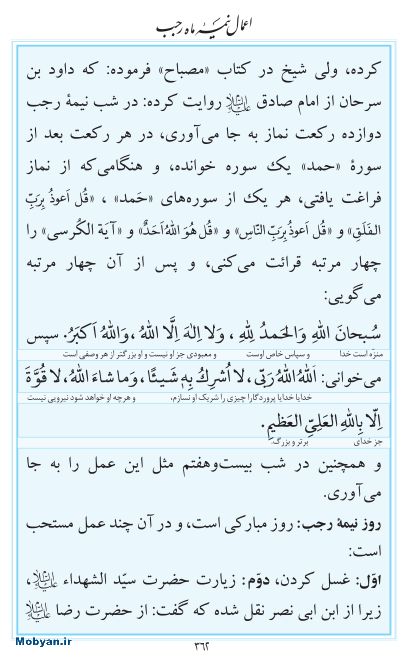 اعمال نیمهٔ ماه رجب
کرده، ولی شیخ در کتاب «مصباح» فرموده: که داود بن
سرحان از امام صادق علیه‌السلام روایت کرده: در شب نیمهٔ رجب
دوازده رکعت نماز به جا می‌آوری، در هر رکعت بعد از
سورهٔ «حمد» یک سوره خوانده، و هنگامی‌که از نماز
فراغت یافتی، هر یک از سوره‌های «حَمد» ، «قُل اَعوذُ بِرَبِّ
الفَلَقِ» و «قُل اَعوذُ بِرَبِّ النّاسِ» و «قُل هُوَ اللّٰهُ اَحَدٌ» و «آیَة الکُرسی» را
چهار مرتبه قرائت می‌کنی، و پس از آن چهار مرتبه
می‌گویی:
سُبحانَ اللّٰهِ وَالحَمدُ لِلّٰهِ ، وَلا اِلٰهَ اِلَّا اللّٰهُ ،وَاللّٰهُ اَکبَرُ. سپس
منزه است خدا و سپاس خاص اوست و معبودی جز او نیست و او بزرگتر از هر وصفی است
می‌خوانی: اَللّٰهُ اللّٰهُ رَبّی، لا اُشرِكُ بِهِ شَیئًا، وَما شاءَ اللّٰهُ، لا قُوَّةَ
خدایا خدایا پروردگارا چیزی را شریک او نسازم، و هرچه او خواهد شود نیرویی نیست
اِلّا بِاللّٰهِ العَلِیِّ العَظیمِ.
جز خدای برتر و بزرگ.
و همچنین در شب بیست‌وهفتم مثل این عمل را به جا
می‌آوری.
روز نیمهٔ رجب: روز مبارکی است، و در آن چند عمل مستحب
است:
اوّل: غسل کردن، دوّم: زیارت حضرت سیّد الشهداء علیه‌السلام،
زیرا از ابن ابی نصر نقل شده که گفت: از حضرت رضا علیه‌السلام
۳۶۲
Mobyan.ir